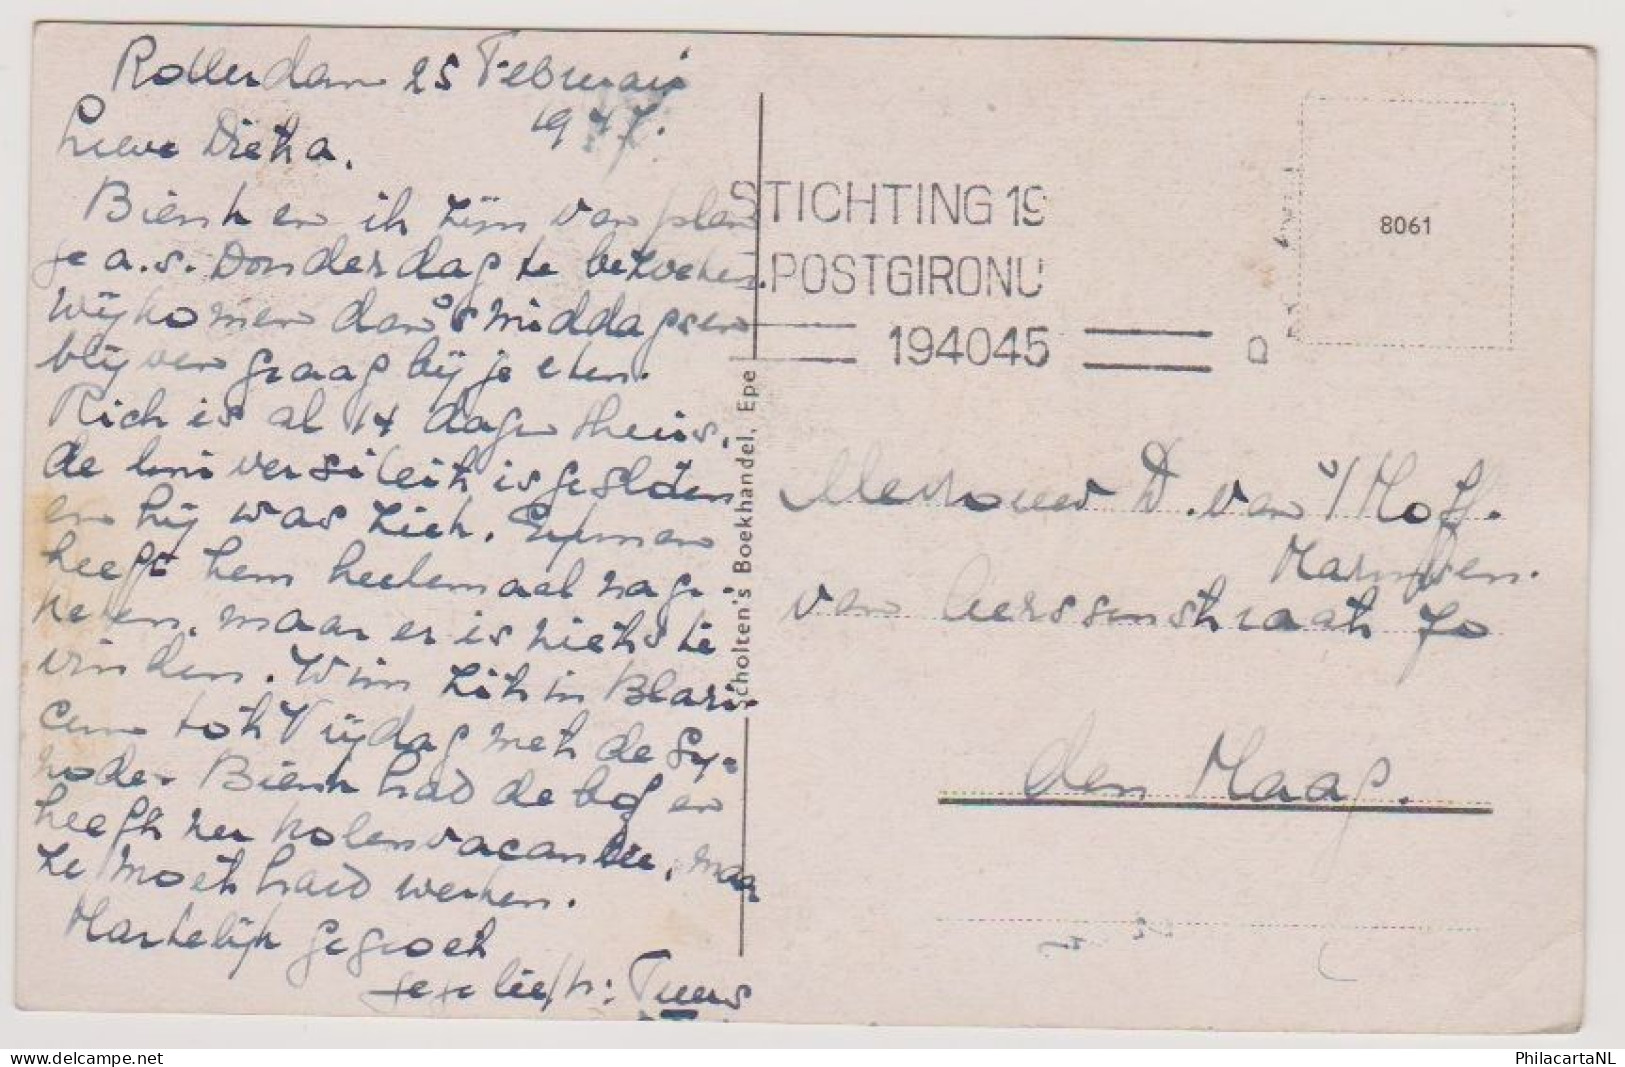 Rotterdam 25 Februari
1947.
Lieve Dieka.
Bienk en ik zijn van plan
je a.s. Donderdag te bezoeken.
Wij komen dan 's middags en
blijven graag bij je eten.
Rich is al 14 dagen thuis,
de universiteit is gesloten
en hij was ziek.
heeft hem heelemaal nage-
keken, maar er is niets te
vinden. Wim zit in Blari-
cum tot Vrijdag met de Sy-
node. Bienk had de bof en
heeft nu kolenvacantie, maar
ze moet hard werken.
Hartelijk gegroet
je je liefh: Truus
STICHTING 19
POSTGIRONU
194045
8061
Scholten's Boekhandel, Epe
Mevrouw D. van 't Hoff.
van Aerssenstraat 70
den Haag.
PhilacartaNL